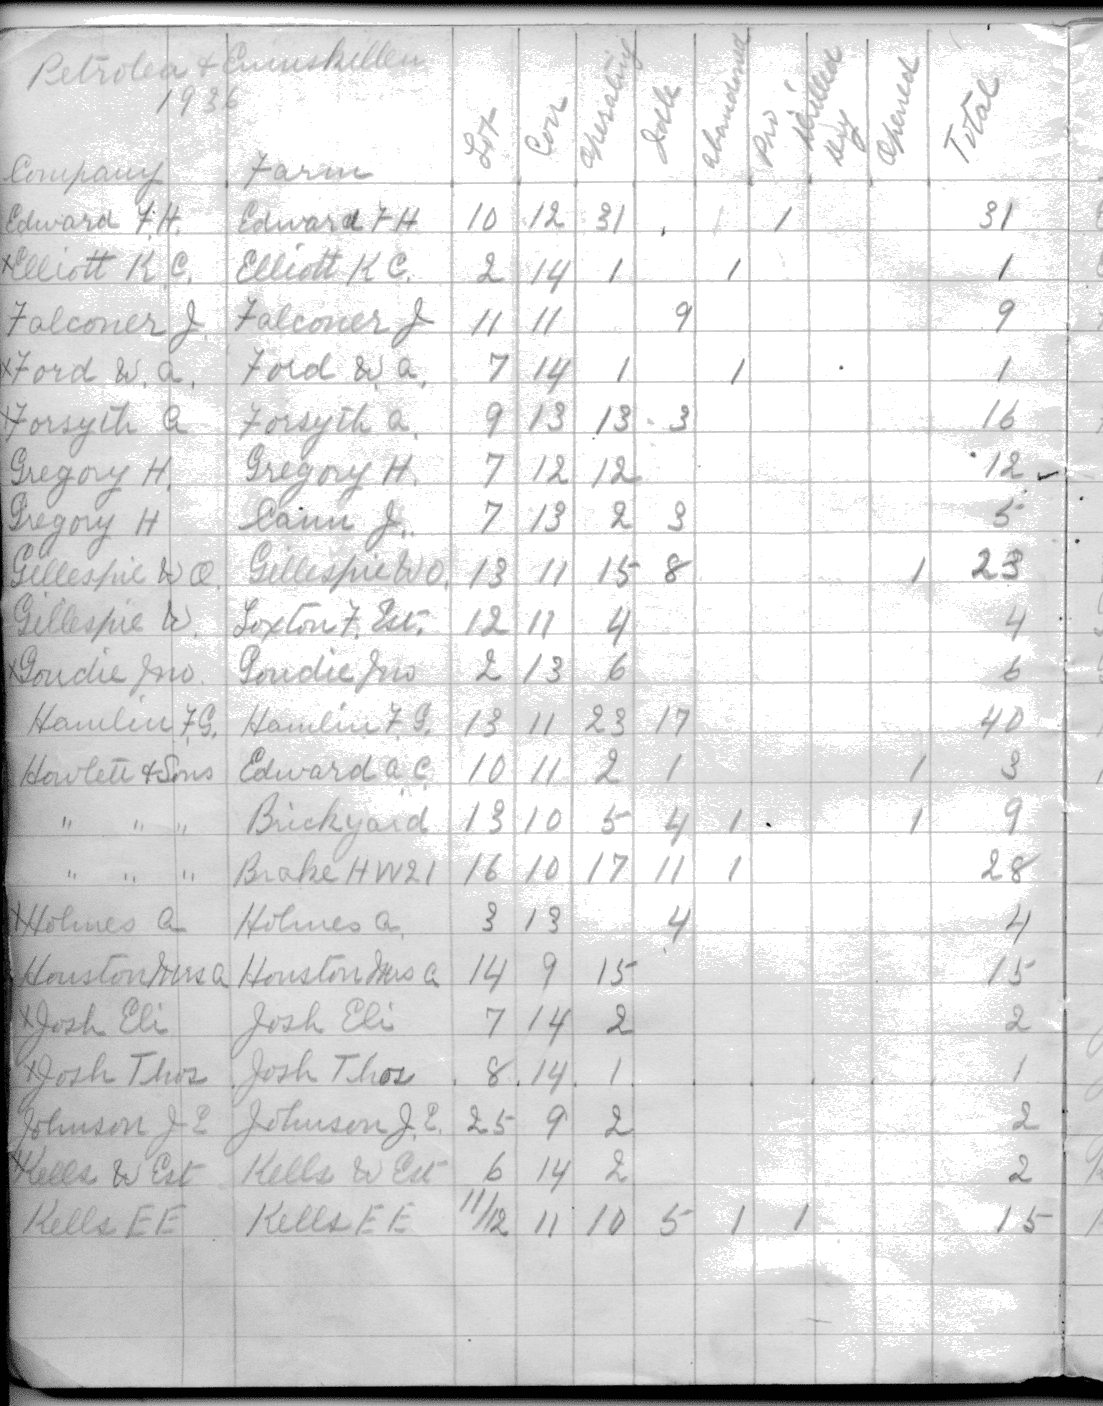 Petrolea & Enniskillen
1936
Company Farm Lot Con Operating Idle Abandoned Pro Drilled Dry Opened Total
Edward F.H. Edward F H 10 12 31 1 31
x Elliott K.C. Elliott K C. 2 14 1 1 1
Falconer J. Falconer J 11 11 9 9
x Ford W.A. Ford W.A. 7 14 1 1 1
x Forsyth A Forsyth A. 9 13 13 3 16
Gregory H. Gregory H. 7 12 12 12
Gregory H Cann J. 7 13 2 3 5
Gillespie W O. Gillespie W O. 13 11 15 8 1 23
Gillespie W. Loxton F. Est. 12 11 4 4
x Goudie Jno. Goudie Jno 2 13 6 6
Hamlin F.G. Hamlin F.G. 13 11 23 17 40
Howlett & Sons Edward A.C. 10 11 2 1 1 3
" " " Brickyard 13 10 5 4 1 1 9
" " " Brake H W21 16 10 17 11 1 28
x Holmes A Holmes A. 3 13 4 4
Houston Mrs A Houston Mrs A 14 9 15 15
x Josh Eli Josh Eli 7 14 2 2
x Josh Thos Josh Thos 8 14 1 1
Johnson J E Johnson J.E. 25 9 2 2
x Kells W Est Kells W Est 6 14 2 2
Kells E E Kells E E 11/12 11 10 5 1 1 15